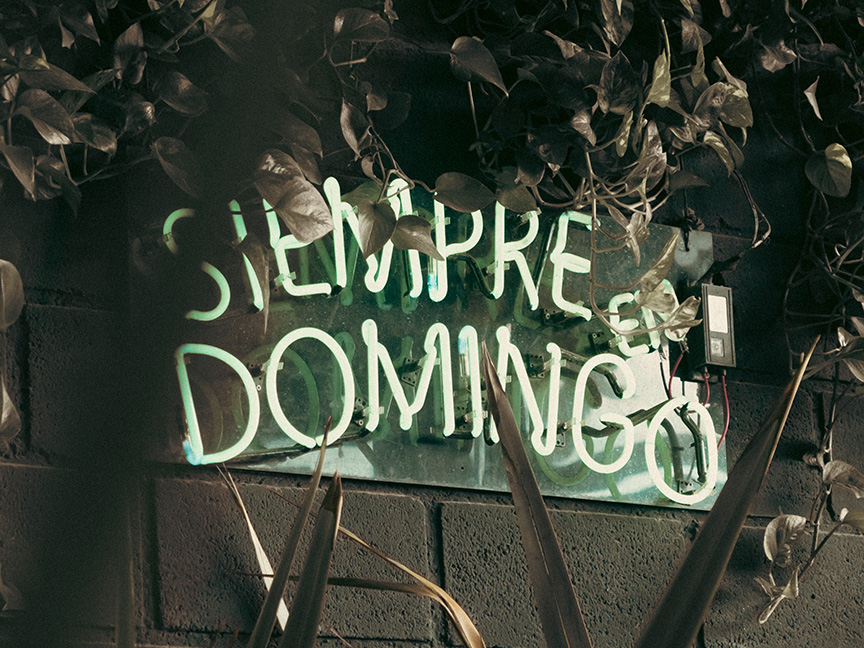 SIEMPRE
en
DOMINGO